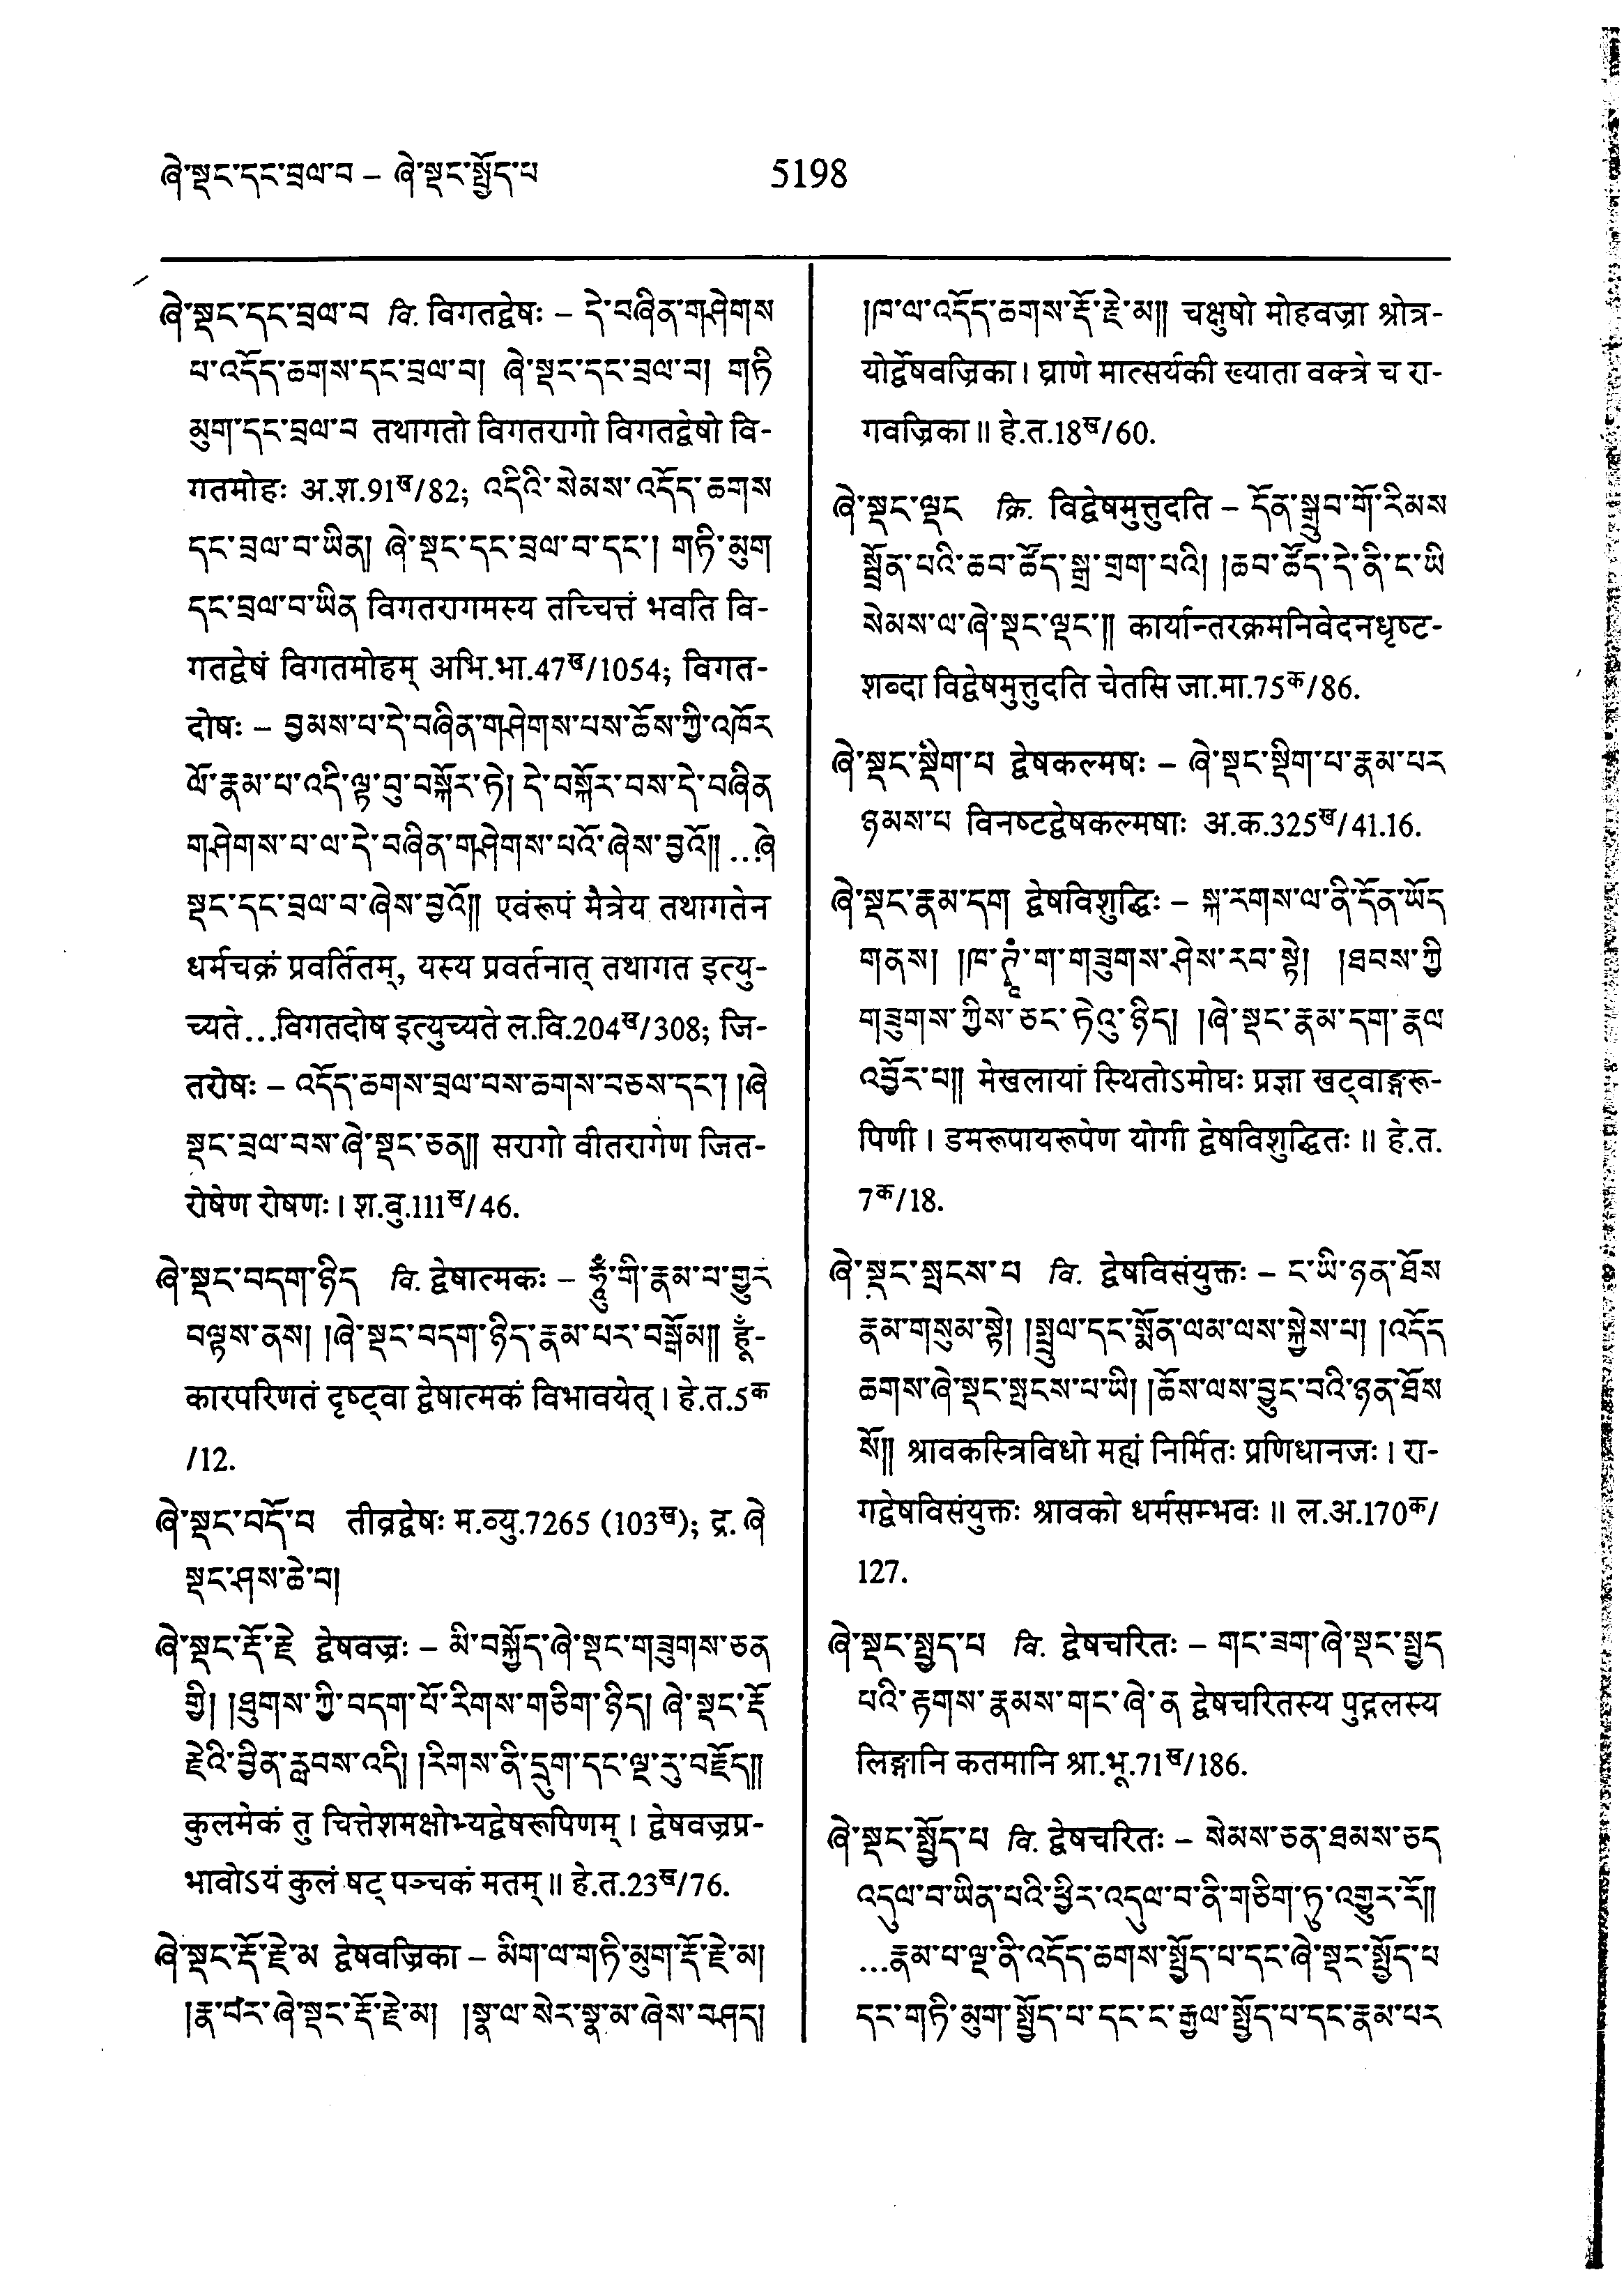 ཞེ་སྡང་དང་བྲལ་བ – ཞེ་སྡང་སྤྱོད་པ
5198
ཞེ་སྡང་དང་བྲལ་བ वि. विगतद्वेषः – དེ་བཞིན་གཤེགས
པ་འདོད་ཆགས་དང་བྲལ་བ། ཞེ་སྡང་དང་བྲལ་བ། གཏི
མུག་དང་བྲལ་བ तथागतो विगतरागो विगतद्वेषो वि-
गतमोहः अ.श.91ख/82; འདིའི་སེམས་འདོད་ཆགས
དང་བྲལ་བ་ཡིན། ཞེ་སྡང་དང་བྲལ་བ་དང་། གཏི་མུག
དང་བྲལ་བ་ཡིན विगतरागमस्य तच्चित्तं भवति वि-
गतद्वेषं विगतमोहम् अभि.भा.47ख/1054; विगत-
दोषः – བྱམས་པ་དེ་བཞིན་གཤེགས་པས་ཆོས་ཀྱི་འཁོར
ལོ་རྣམ་པ་འདི་ལྟ་བུ་བསྐོར་ཏེ། དེ་བསྐོར་བས་དེ་བཞིན
གཤེགས་པ་ལ་དེ་བཞིན་གཤེགས་པའོ་ཞེས་བྱའོ།། ...ཞེ
སྡང་དང་བྲལ་བ་ཞེས་བྱའོ།། एवंरूपं मैत्रेय तथागतेन
धर्मचक्रं प्रवर्तितम्, यस्य प्रवर्तनात् तथागत इत्यु-
च्यते...विगतदोष इत्युच्यते ल.वि.204ख/308; जि-
तरोषः – འདོད་ཆགས་བྲལ་བས་ཆགས་བཅས་དང་། །ཞེ
སྡང་བྲལ་བས་ཞེ་སྡང་ཅན།། सरागो वीतरागेण जित-
रोषेण रोषणः। श.बु.111ख/46.
ཞེ་སྡང་བདག་ཉིད वि. द्वेषात्मकः – ཧཱུྃ་གི་རྣམ་པ་གྱུར
བལྟས་ནས། །ཞེ་སྡང་བདག་ཉིད་རྣམ་པར་བསྒོམ།། हूँ-
कारपरिणतं दृष्ट्वा द्वेषात्मकं विभावयेत्। हे.त.5क
/12.
ཞེ་སྡང་བདོ་བ तीव्रद्वेषः म.व्यु.7265 (103ख); द्र. ཞེ
སྡང་ཤས་ཆེ་བ།
ཞེ་སྡང་རྡོ་རྗེ द्वेषवज्रः – མི་བསྐྱོད་ཞེ་སྡང་གཟུགས་ཅན
གྱི། །ཐུགས་ཀྱི་བདག་པོ་རིགས་གཅིག་ཉིད། ཞེ་སྡང་རྡོ
རྗེའི་བྱིན་རླབས་འདི། །རིགས་ནི་དྲུག་དང་ལྔ་རུ་བརྗོད།།
कुलमेकं तु चित्तेशमक्षोभ्यद्वेषरूपिणम्। द्वेषवज्रप्र-
भावोऽयं कुलं षट् पञ्चकं मतम्॥ हे.त.23ख/76.
ཞེ་སྡང་རྡོ་རྗེ་མ द्वेषवज्रिका – མིག་ལ་གཏི་མུག་རྡོ་རྗེ་མ།
།རྣ་བར་ཞེ་སྡང་རྡོ་རྗེ་མ། །སྣ་ལ་སེར་སྣ་མ་ཞེས་བཤད།
།ཁ་ལ་འདོད་ཆགས་རྡོ་རྗེ་མ།། चक्षुषो मोहवज्रा श्रोत्र-
योर्द्वेषवज्रिका। घ्राणे मात्सर्यकी ख्याता वक्त्रे च रा-
गवज्रिका॥ हे.त.18ख/60.
ཞེ་སྡང་ལྡང क्रि. विद्वेषमुत्तुदति – དོན་སྒྲུབ་གོ་རིམས
སྤྲོན་པའི་ཆབ་ཚོད་སྒྲ་གྲག་པའི། །ཆབ་ཚོད་དེ་ནི་ང་ཡི
སེམས་ལ་ཞེ་སྡང་ལྡང་།། कार्यान्तरक्रमनिवेदनधृष्ट-
शब्दा विद्वेषमुत्तुदति चेतसि जा.मा.75क/86.
ཞེ་སྡང་སྡིག་པ द्वेषकल्मषः – ཞེ་སྡང་སྡིག་པ་རྣམ་པར
ཉམས་པ विनष्टद्वेषकल्मषाः अ.क.325ख/41.16.
ཞེ་སྡང་རྣམ་དག द्वेषविशुद्धिः – སྐ་རགས་ལ་ནི་དོན་ཡོད
གནས། །ཁ་ཊྭཱཾ་ག་གཟུགས་ཤེས་རབ་སྟེ། །ཐབས་ཀྱི
གཟུགས་ཀྱིས་ཅང་ཏེའུ་ཉིད། །ཞེ་སྡང་རྣམ་དག་རྣལ
འབྱོར་པ།། मेखलायां स्थितोऽमोघः प्रज्ञा खट्वाङ्गरू-
पिणी। डमरूपायरूपेण योगी द्वेषविशुद्धितः॥ हे.त.
7क/18.
ཞེ་སྡང་སྤངས་པ वि. द्वेषविसंयुक्तः – ང་ཡི་ཉན་ཐོས
རྣམ་གསུམ་སྟེ། །སྤྲུལ་དང་སྨོན་ལམ་ལས་སྐྱེས་པ། །འདོད
ཆགས་ཞེ་སྡང་སྤངས་པ་ཡི། །ཆོས་ལས་བྱུང་བའི་ཉན་ཐོས
སོ།། श्रावकस्त्रिविधो मह्यं निर्मितः प्रणिधानजः। रा-
गद्वेषविसंयुक्तः श्रावको धर्मसम्भवः॥ ल.अ.170क/
127.
ཞེ་སྡང་སྤྱད་པ वि. द्वेषचरितः – གང་ཟག་ཞེ་སྡང་སྤྱད
པའི་རྟགས་རྣམས་གང་ཞེ་ན द्वेषचरितस्य पुद्गलस्य
लिङ्गानि कतमानि श्रा.भू.71ख/186.
ཞེ་སྡང་སྤྱོད་པ वि. द्वेषचरितः – སེམས་ཅན་ཐམས་ཅད
འདུལ་བ་ཡིན་པའི་ཕྱིར་འདུལ་བ་ནི་གཅིག་ཏུ་འགྱུར་རོ།།
...རྣམ་པ་ལྔ་ནི་འདོད་ཆགས་སྤྱོད་པ་དང་ཞེ་སྡང་སྤྱོད་པ
དང་གཏི་མུག་སྤྱོད་པ་དང་ང་རྒྱལ་སྤྱོད་པ་དང་རྣམ་པར